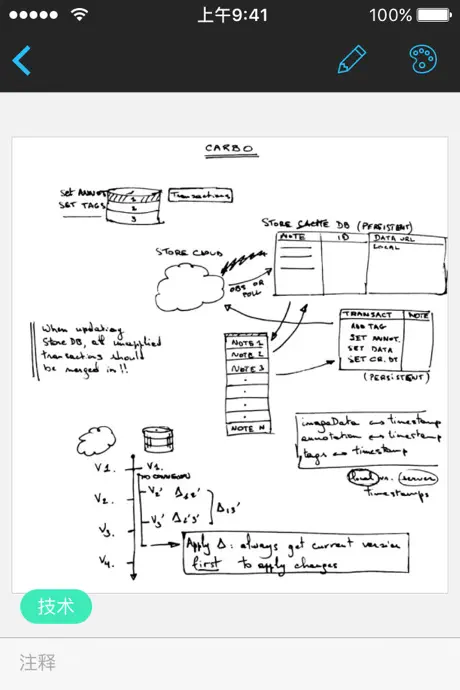 上午9:41
100%
CARBO
Set ANNOT
SET TAGS
1
2
3
Transactions
STORE CACHE DB (PERSISTENT)
NOTE
ID
DATA URL
LOCAL
STORE CLOUD
OBS OR
POLL
TRANSACT
NOTE
ADD TAG
SET ANNOT.
SET DATA
SET CR. DT
(PERSISTENT)
When updating
Store DB, all unapplied
transactions should
be merged in!!
NOTE 1
NOTE 2
NOTE 3
NOTE N
imageData as timestamp
annotation as timestamp
tags as timestamp
local vs. server
timestamps
V1.
V1.
V2.
V2' Δ12'
V3.
V3' Δ2'3'
Δ13'
V4.
Apply Δ: always get current version
first to apply changes
技术
注释